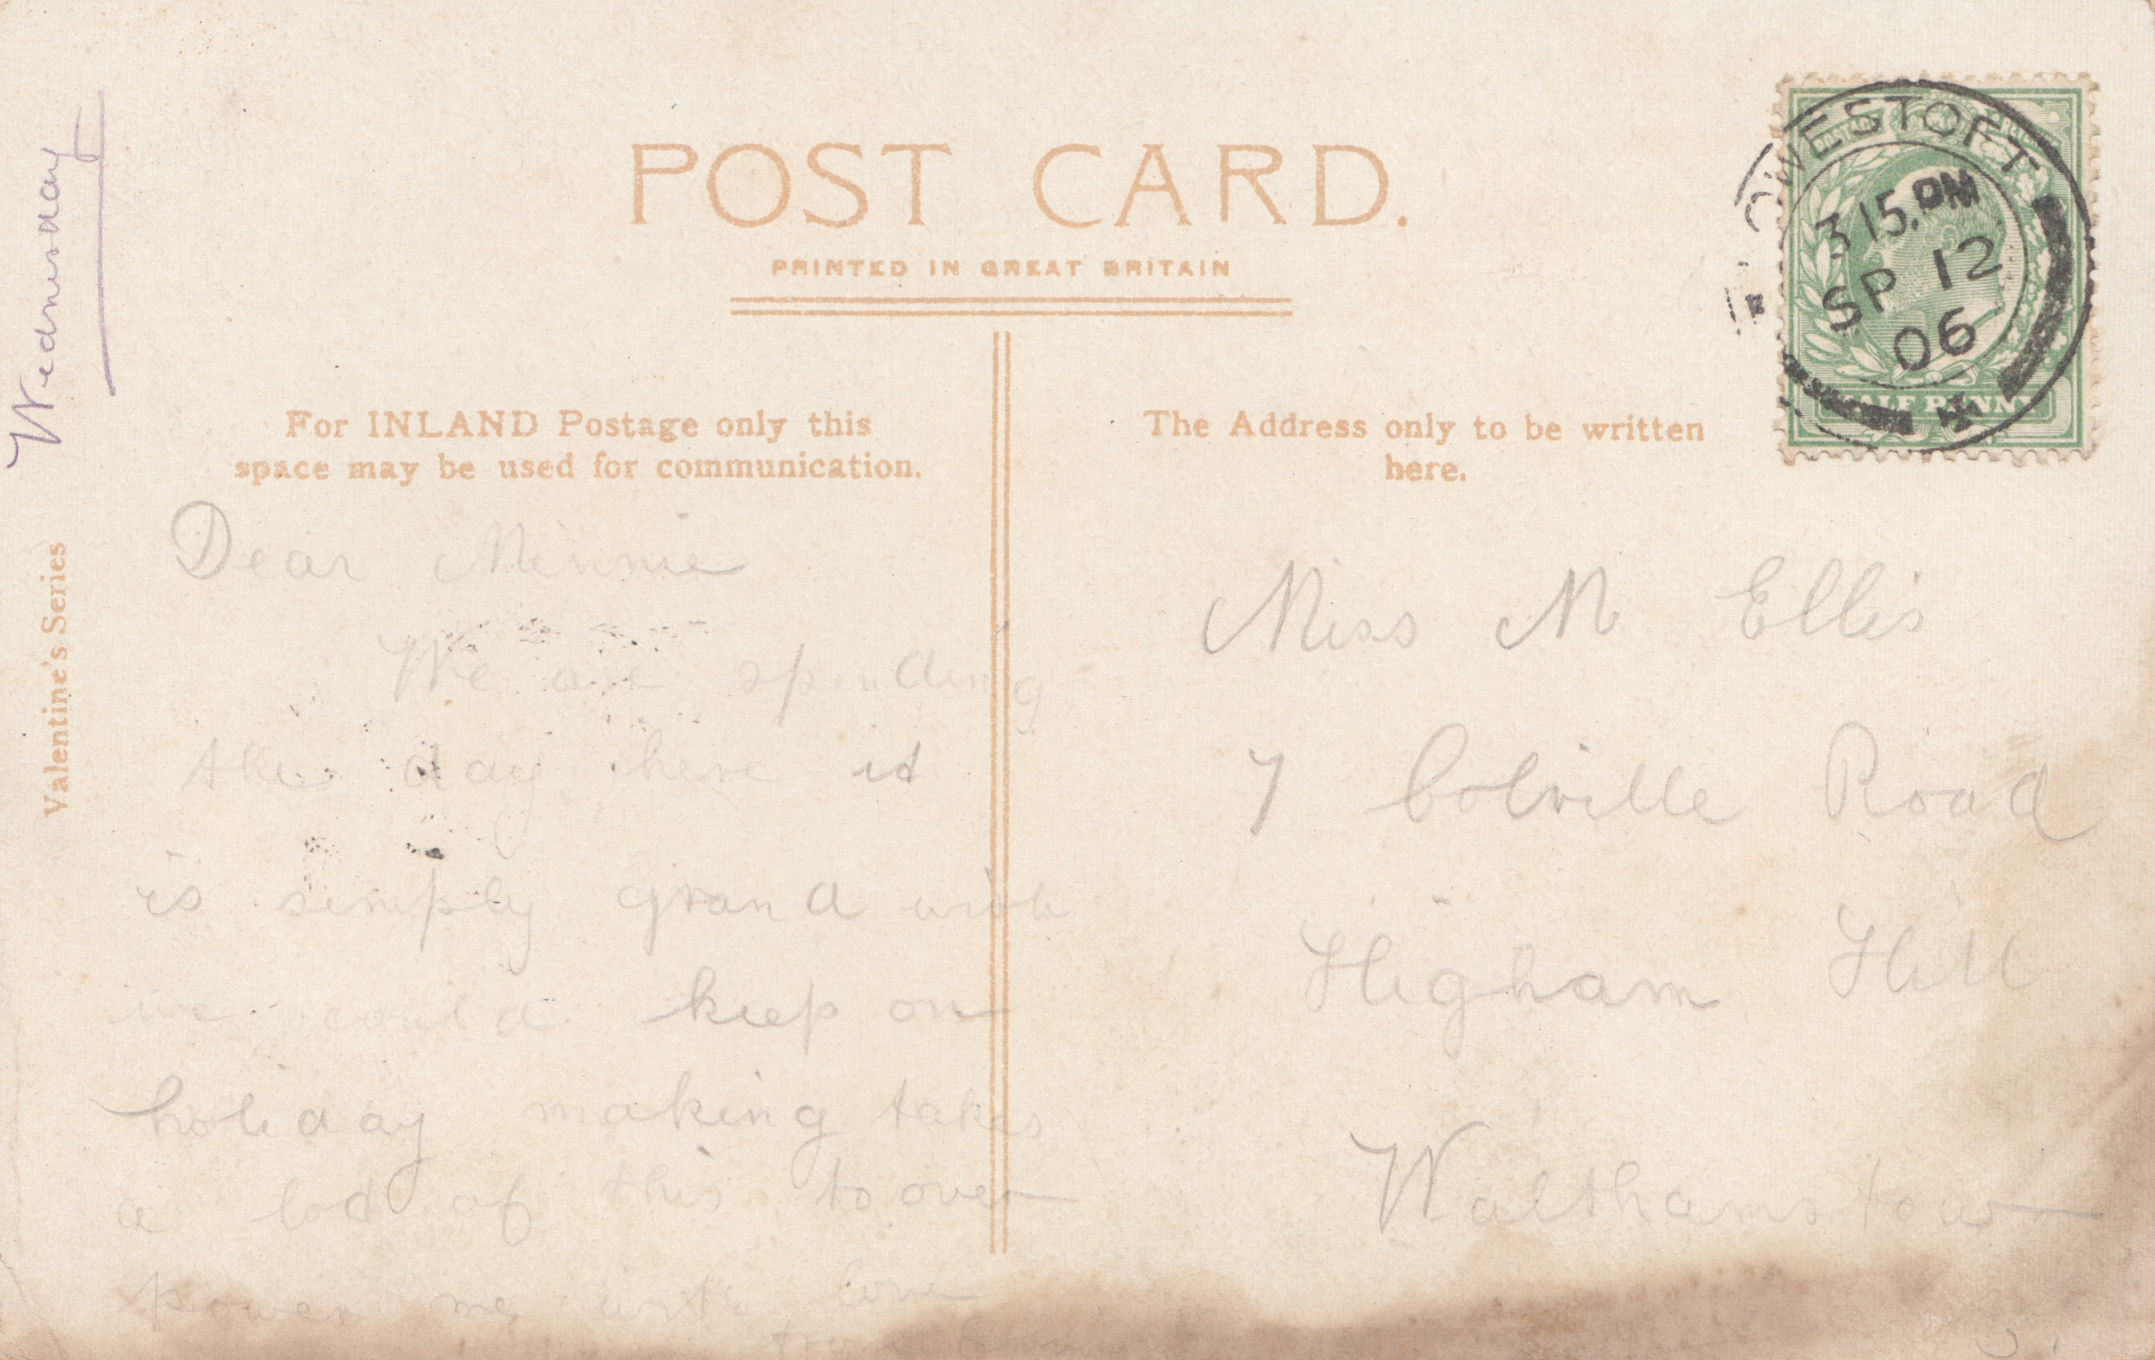 Wednesday
POST CARD.
PRINTED IN GREAT BRITAIN
For INLAND Postage only this
space may be used for communication.
The Address only to be written
here.
Valentine's Series
LOWESTOFT
3 15. PM
SP 12
06
HALF PENNY
Dear Minnie
We are spending
the day here it
is simply grand wish
we could keep on
holiday making takes
a lot of this to over
power me with love
Miss M Ellis
7 Colville Road
Higham Hill
Walthamstow